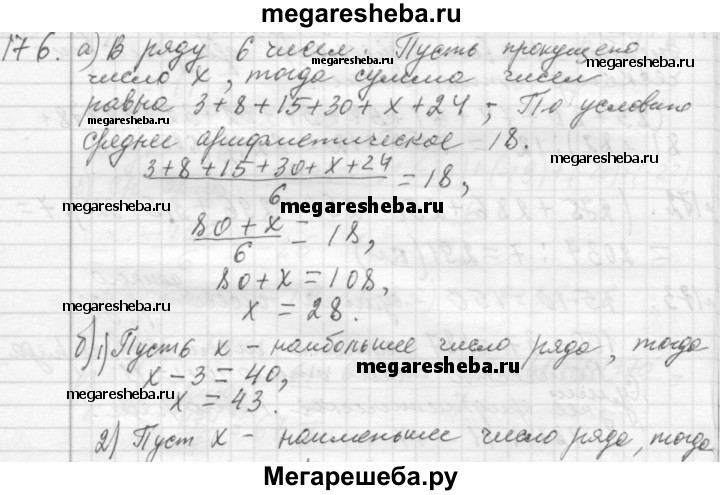 megaresheba.ru
176. а) В ряду 6 чисел. Пусть пропущено
megaresheba.ru megaresheba.ru
число x, тогда сумма чисел
равна 3+8+15+30+x+24; По условию
megaresheba.ru
среднее арифметическое = 18.
3+8+15+30+x+24
/ 6 = 18,
megaresheba.ru megaresheba.ru megaresheba.ru
80+x
/ 6 = 18,
80+x=108,
megaresheba.ru megaresheba.ru
x = 28.
б) 1) Пусть x – наибольшее число ряда, тогда
megaresheba.ru
x – 3 = 40,
x = 43.
2) Пуст x – наименьшее число ряда, тогда
Мегарешеба.ру